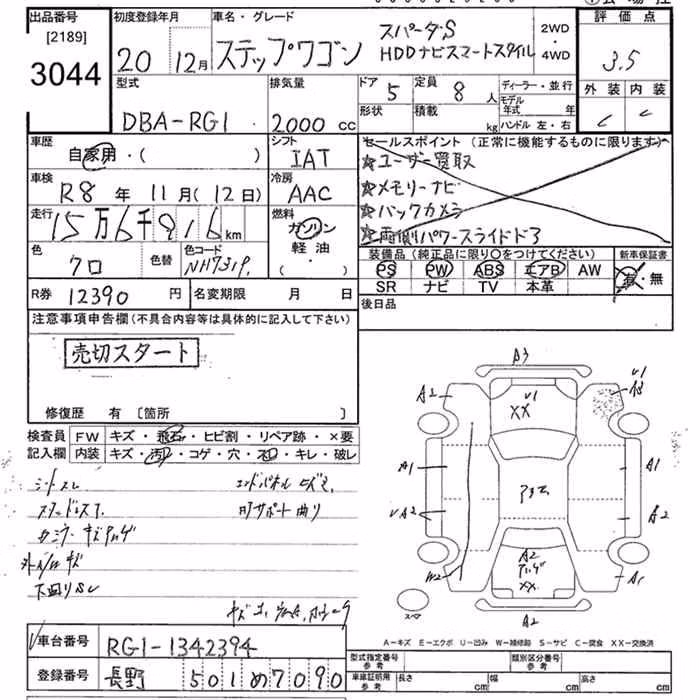 出品番号
[2189]
3044
初度登録年月
20 12月
車名・グレード
ステップワゴン スパーダS
HDDナビスマートスタイル
2WD
4WD
評価点
3.5
外装 内装
C C
型式
DBA-RG1
排気量
2000 cc
ドア 5
定員 8 人
形状
積載 kg
ディーラー・並行
モデル年式 年
ハンドル 左・右
車歴
自家用・( )
シフト
IAT
セールスポイント (正常に機能するものに限ります)
☆ユーザー買取
☆メモリーナビ
☆バックカメラ
☆両側パワースライドドア
車検
R8 年 11月 (12日)
冷房
AAC
走行
15万6千916km
燃料
ガソリン
軽油
( ・ )
色
クロ
色替
色コード
NH731P
装備品 (純正品に限り○をつけてください)
PS PW ABS エアB AW
SR ナビ TV 本革
新車保証書
有・無
R券 12390 円
名変期限 月 日
後日品
注意事項申告欄(不具合内容等は具体的に記入して下さい)
売切スタート
修復歴 有 [箇所 ]
検査員記入欄
FW キズ・飛石・ヒビ割・リペア跡・×要
内装 キズ・汚れ・コゲ・穴・スレ・キレ・破レ
シートスレ
下回りサビ
A3
A2
U1
XX
U1
A3
A1
A1
A2
A2
W2
A2
XX
A1
A2
スペア
A-キズ E-エクボ U-凹み W-補修跡 S-サビ C-腐食 XX-交換済
車台番号 RG1-1342394
登録番号 長野 501 め 7090
型式指定番号 参考
類別区分番号 参考
車庫証明用 参考
長さ cm
幅 cm
高さ cm